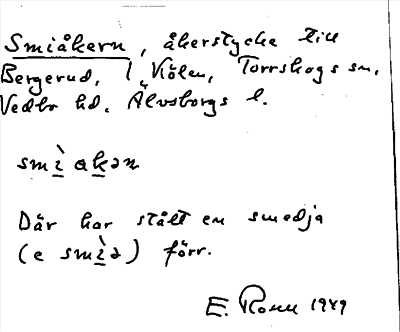 Smiåkern, åkerstycke till
Bergerud, l. Kölen, Torrskogs sn,
Vedbo hd. Älvsborgs l.
smìakən
Där har stått en smedja
(e smìə) förr.
E. Rosen 1949